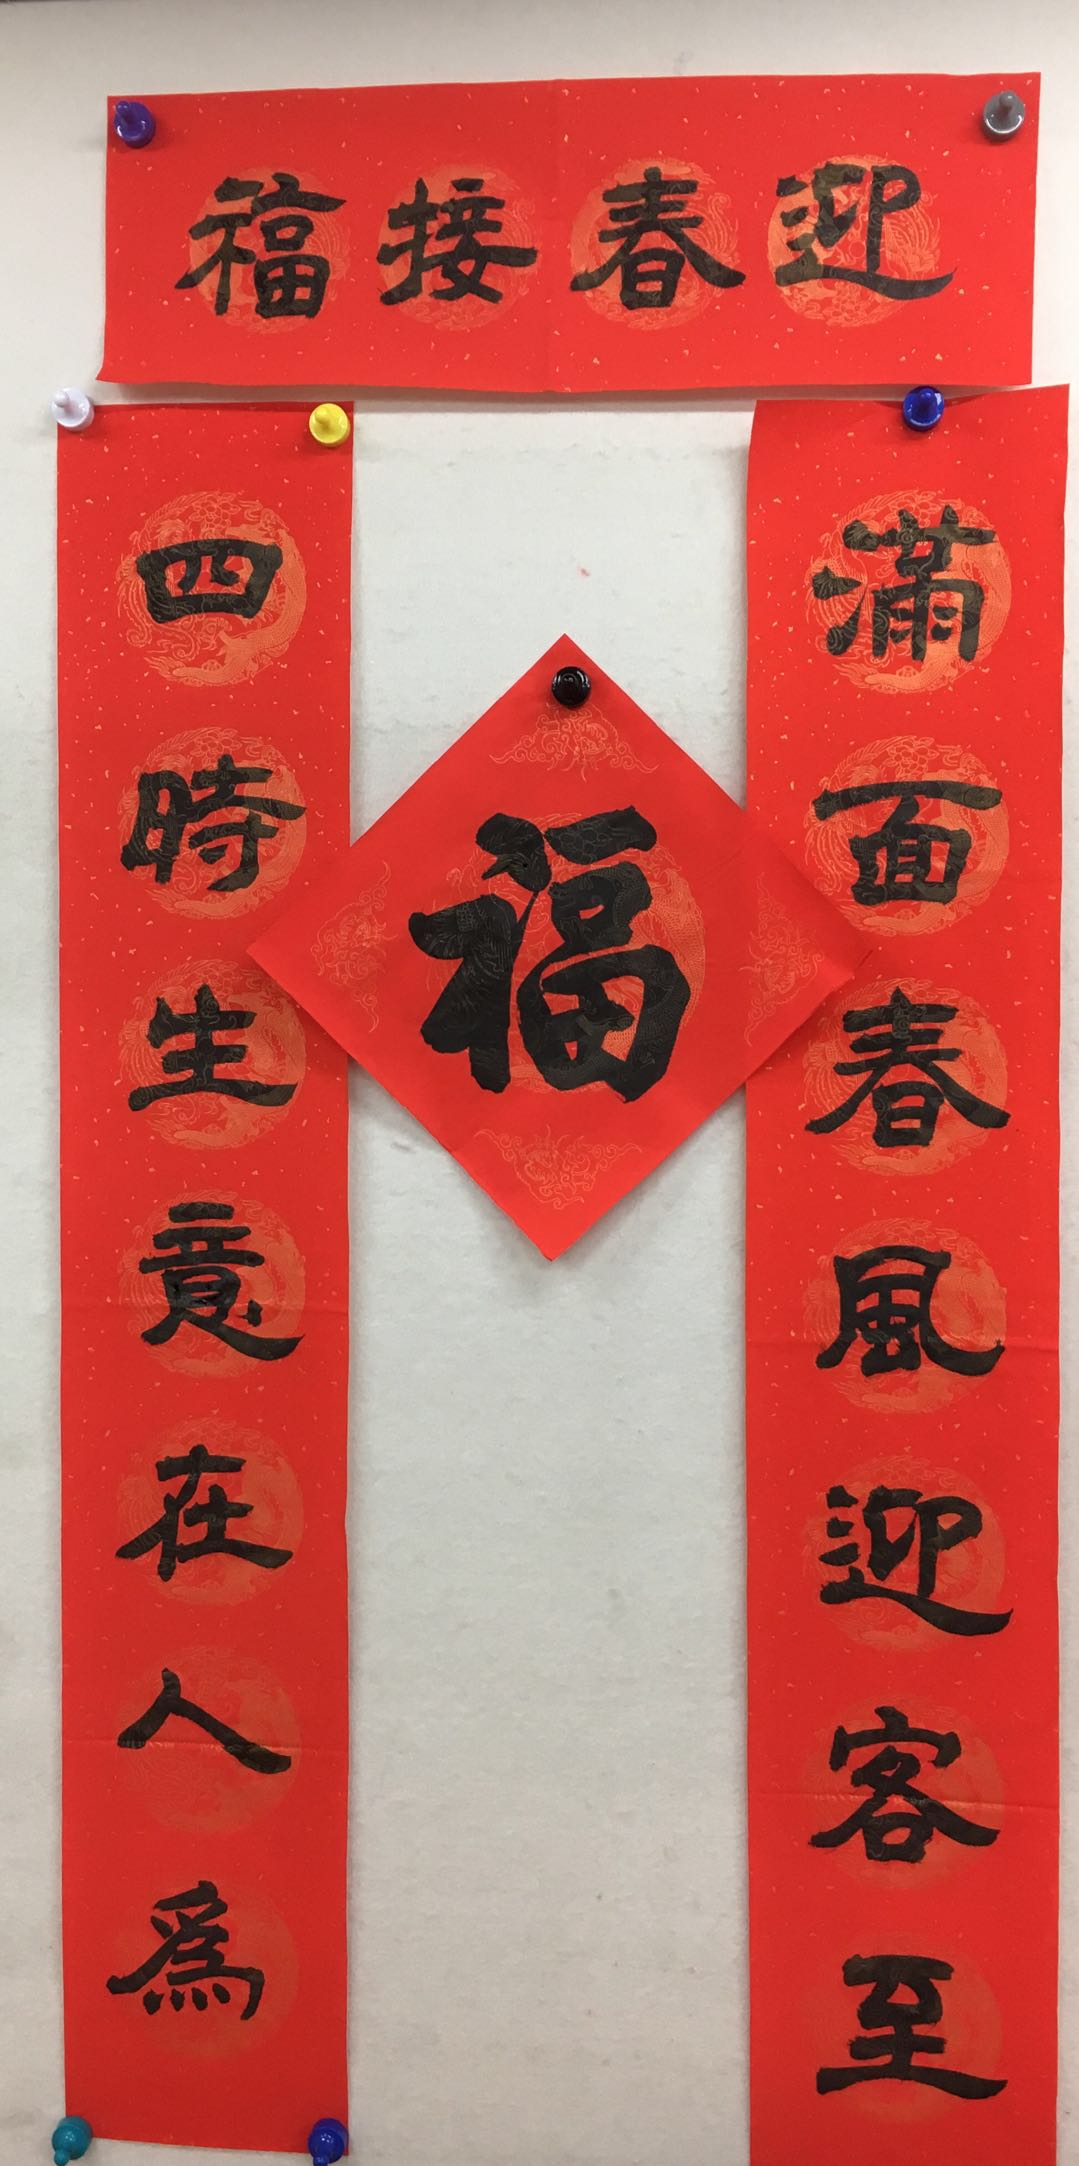 迎春接福
滿面春風迎客至
四時生意在人為
福